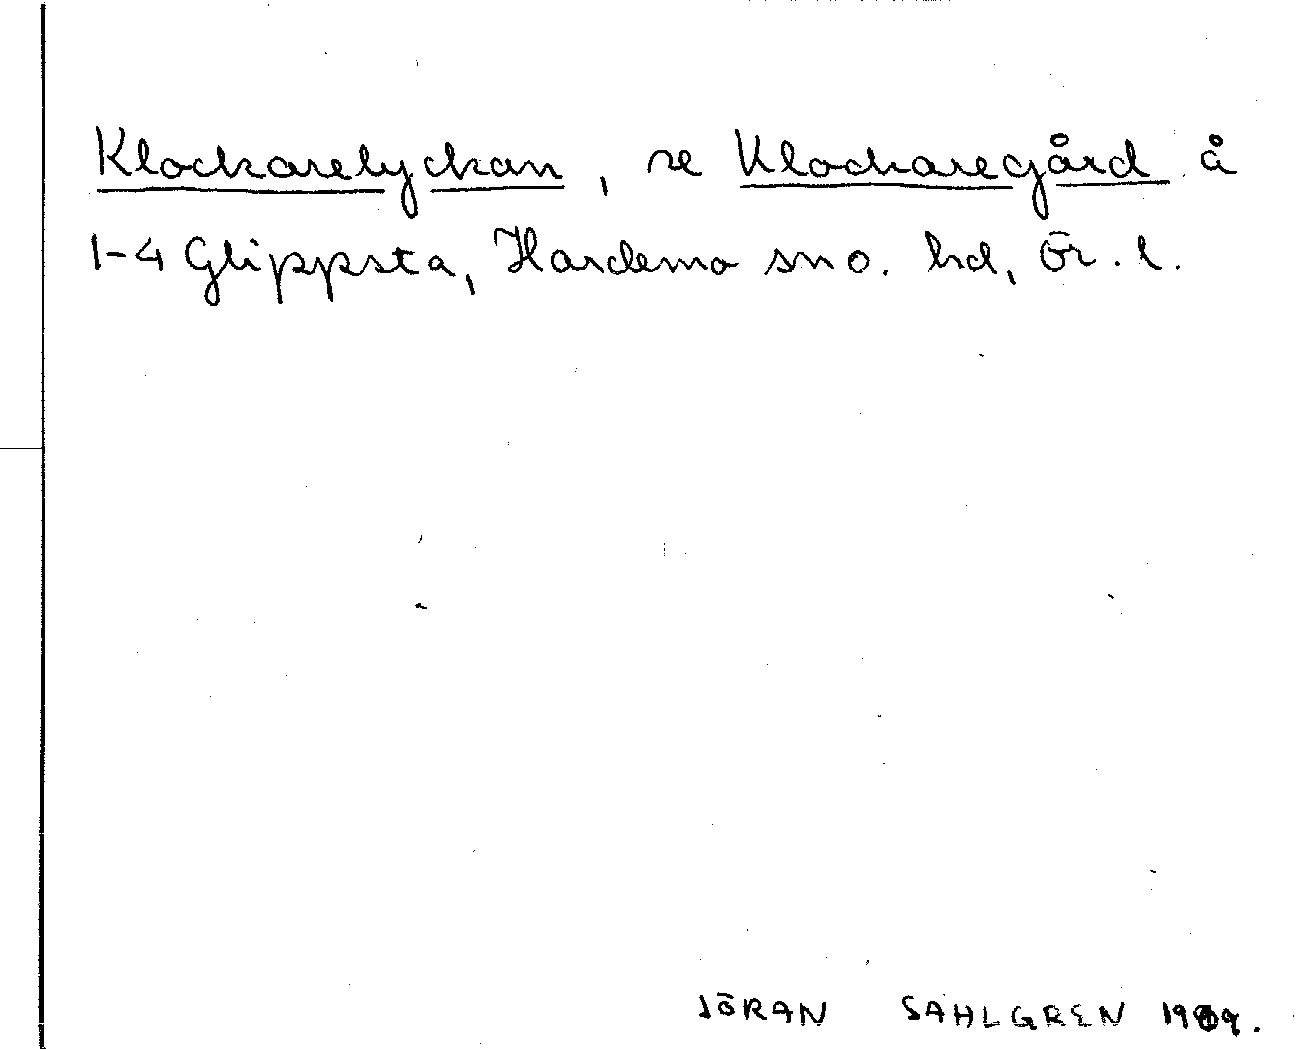 Klockarelyckan, se Klockaregård å
1-4 Glippsta, Hardemo sn o. hd, Ör. l.
JÖRAN SAHLGREN